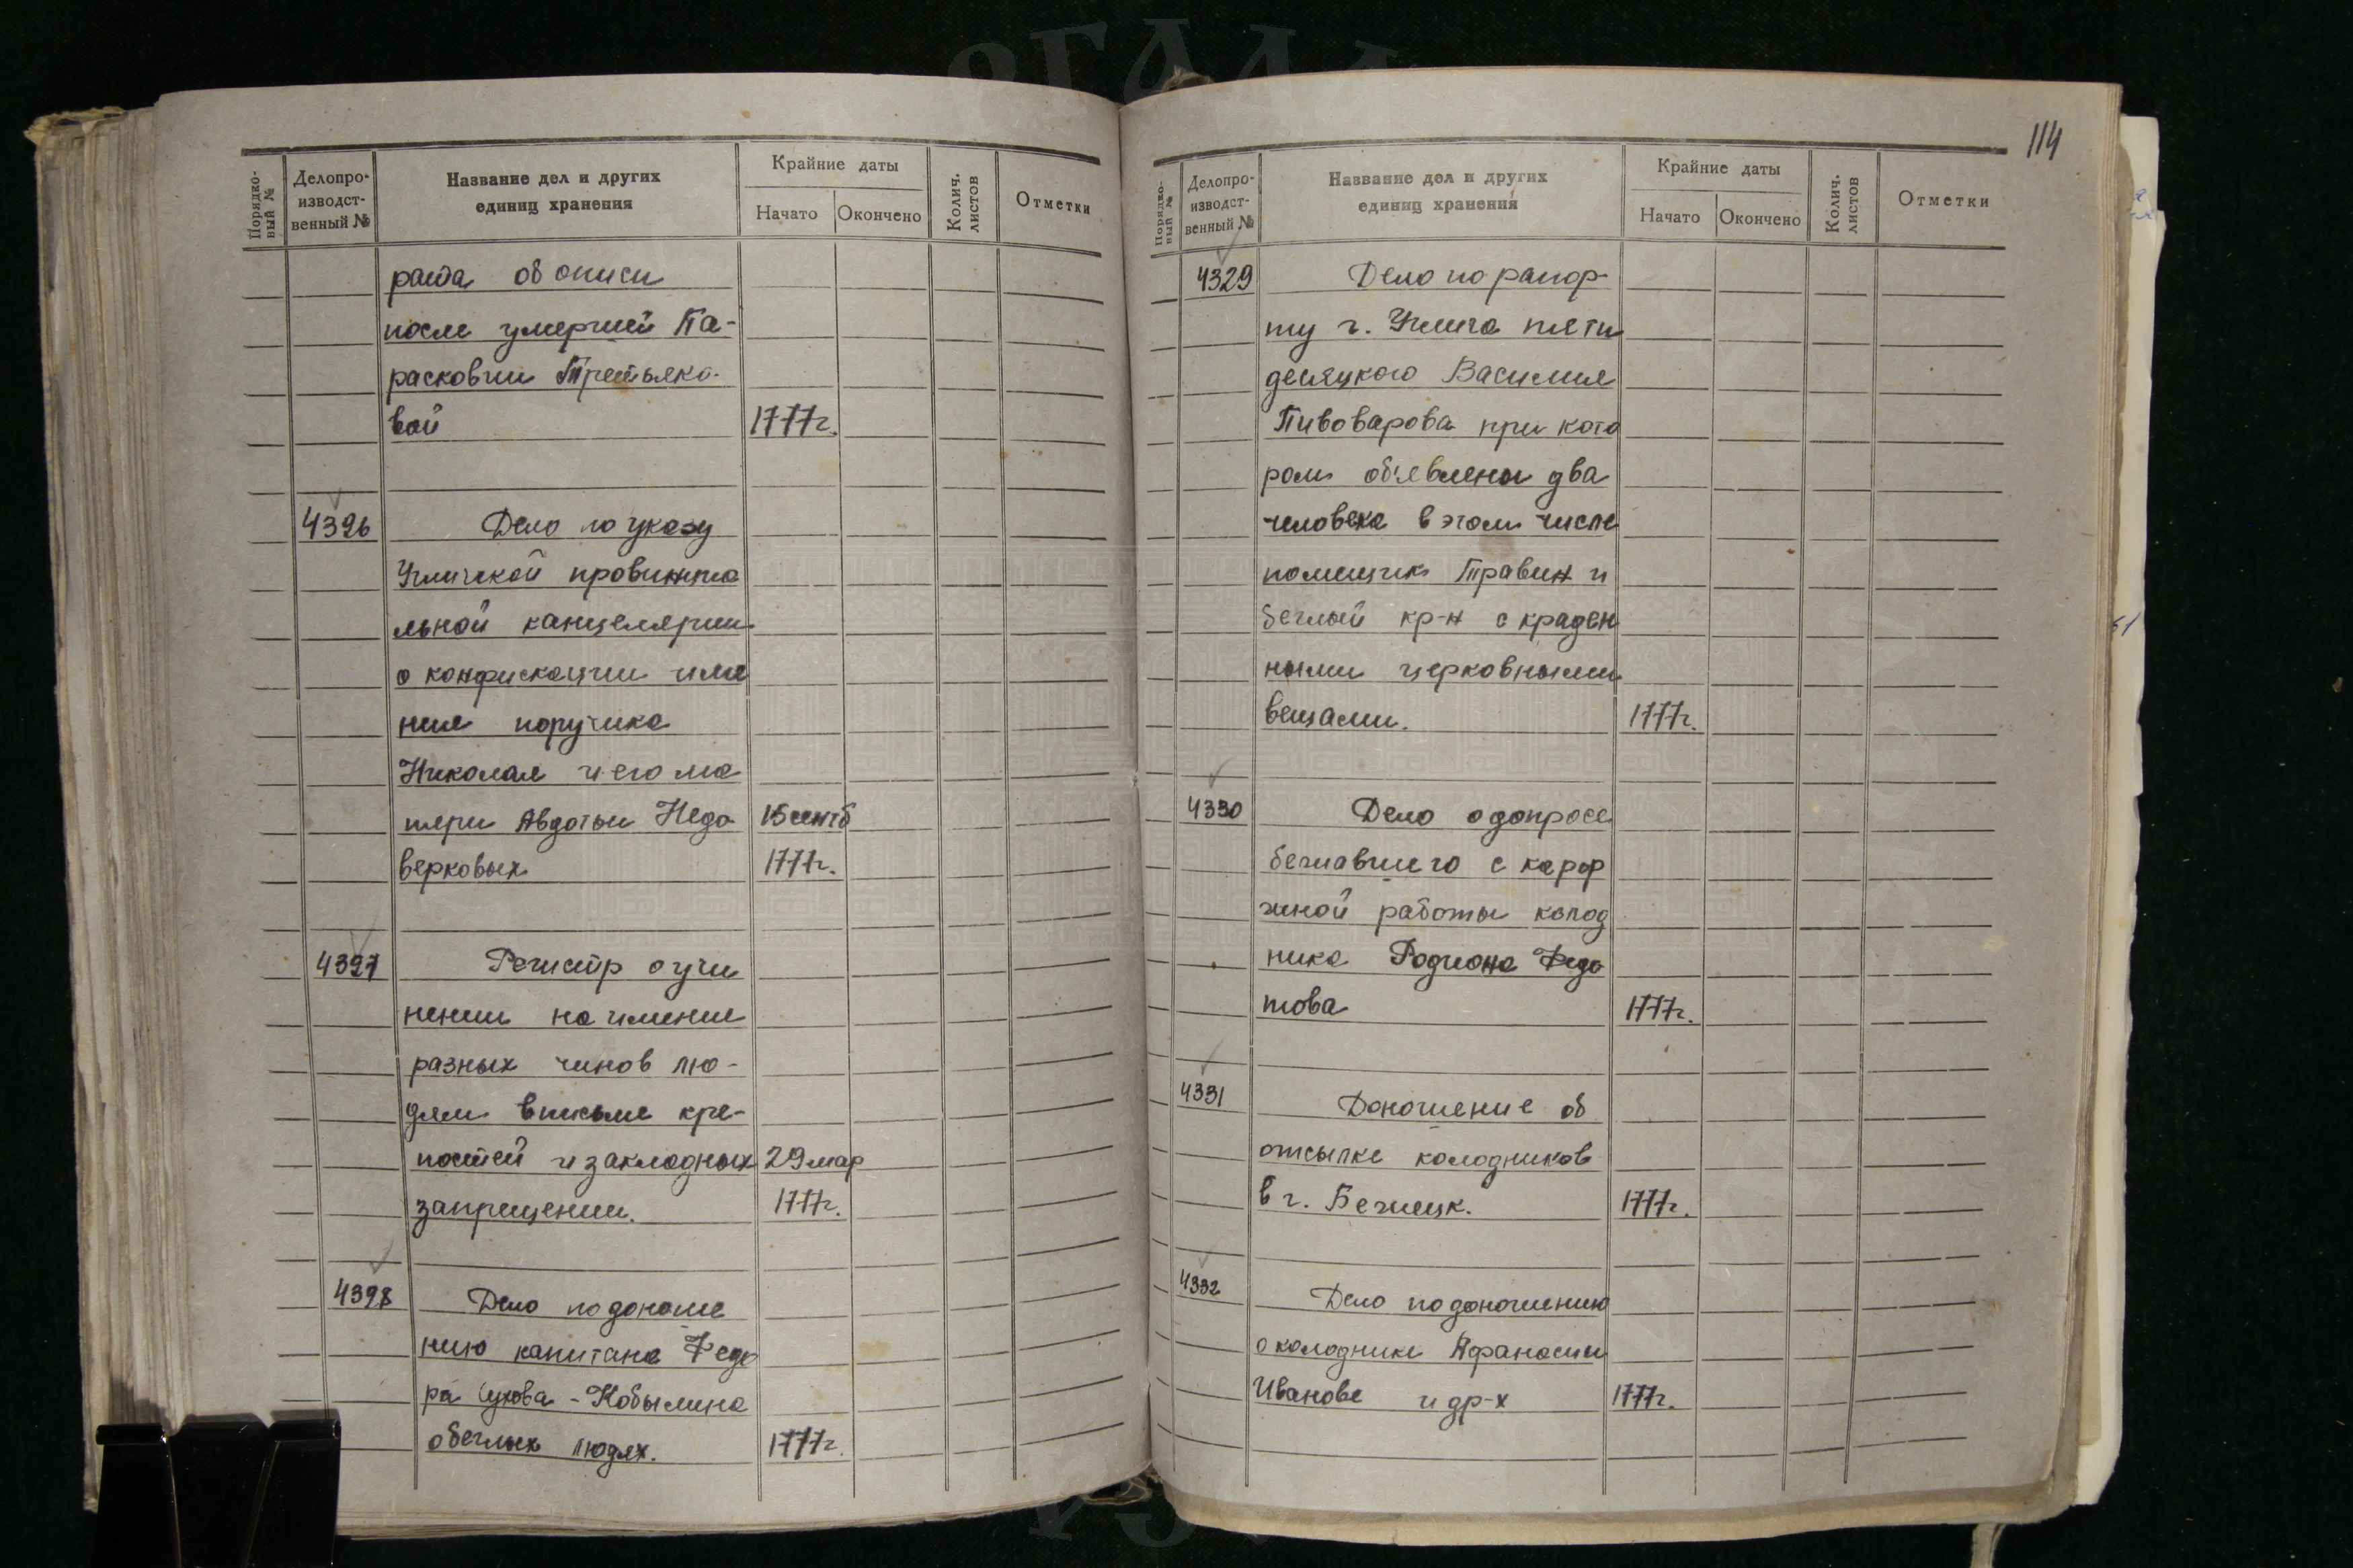 Порядко-
вый №
Делопро-
изводст-
венный №
Название дел и других
единиц хранения
Крайние даты
Начато
Окончено
Колич.
листов
Отметки
рата об описи
после умершей Па-
расковии Третьяко-
вой 1777г.
4396 Дело по указу
Угличской провинциа
льной канцелярии
о конфискации име
ния поручика
Николая и его ма
тери Авдотьи Недо 15 сентб
верковых 1777г.
4397 Регистр о учи
нении на имение
разных чинов лю-
дям в письме кре-
постей и закладных 29 мар
запрещении. 1777г.
4398 Дело по доноше
нию капитана Федо
ра Сухова-Кобылина
о беглых людях. 1777г.
114
Порядко-
вый №
Делопро-
изводст-
венный №
Название дел и других
единиц хранения
Крайние даты
Начато
Окончено
Колич.
листов
Отметки
4329 Дело по рапор-
ту г. Углича пяти
десяцкого Василия
Пивоварова при кото
ром об'явлены два
человека в этом числе
помещик Травин и
беглый кр-н с краден
ными церковными
вещами. 1777г.
4330 Дело о допросе
бежавшего с
жной работы колод
ника Родиона Федо
това 1777г.
4331 Доношение об
отсылке колодников
в г. Бежецк. 1777г.
4332 Дело по доношению
о колоднике Афанасии
Иванове и др-х 1777г.